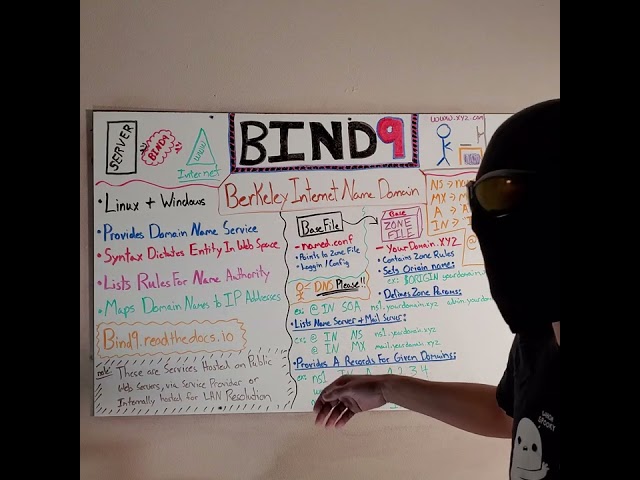 SERVER
BIND9
WWW
Internet
BIND9
www.xyz.com
Berkeley Internet Name Domain
• Linux + Windows
• Provides Domain Name Service
• Syntax Dictates Entity In Web Space
• Lists Rules For Name Authority
• Maps Domain Names to IP Addresses
Bind9.readthedocs.io
note:
These are Services Hosted on Public
Web Servers, via Service Provider or
Internally hosted for LAN Resolution
Base File
- named.conf
• Points to Zone File
• Loggin/Config
DNS Please!!
Base
ZONE
FILE
- YourDomain.XYZ
• Contains Zone Rules
• Sets Origin name:
ex: $ORIGIN
• Defines Zone Params:
ex: @ IN SOA ns1.yourdomain.xyz
• Lists Name Server + Mail Server:
ex: @ IN NS ns1.yourdomain.xyz
@ IN MX mail.yourdomain.xyz
• Provides A Records For Given Domains:
ex: ns1 IN A 1 2 3 4
NS →
MX →
A →
IN →
@